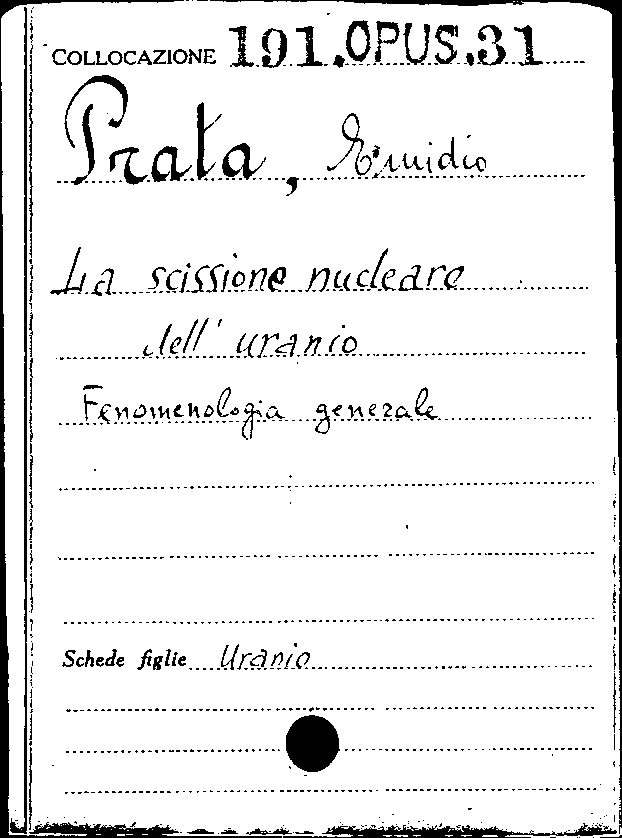 COLLOCAZIONE 191.OPUS.31
Prata, Emidio
La scissione nucleare
dell' uranio
Fenomenologia generale
Schede figlie Uranio